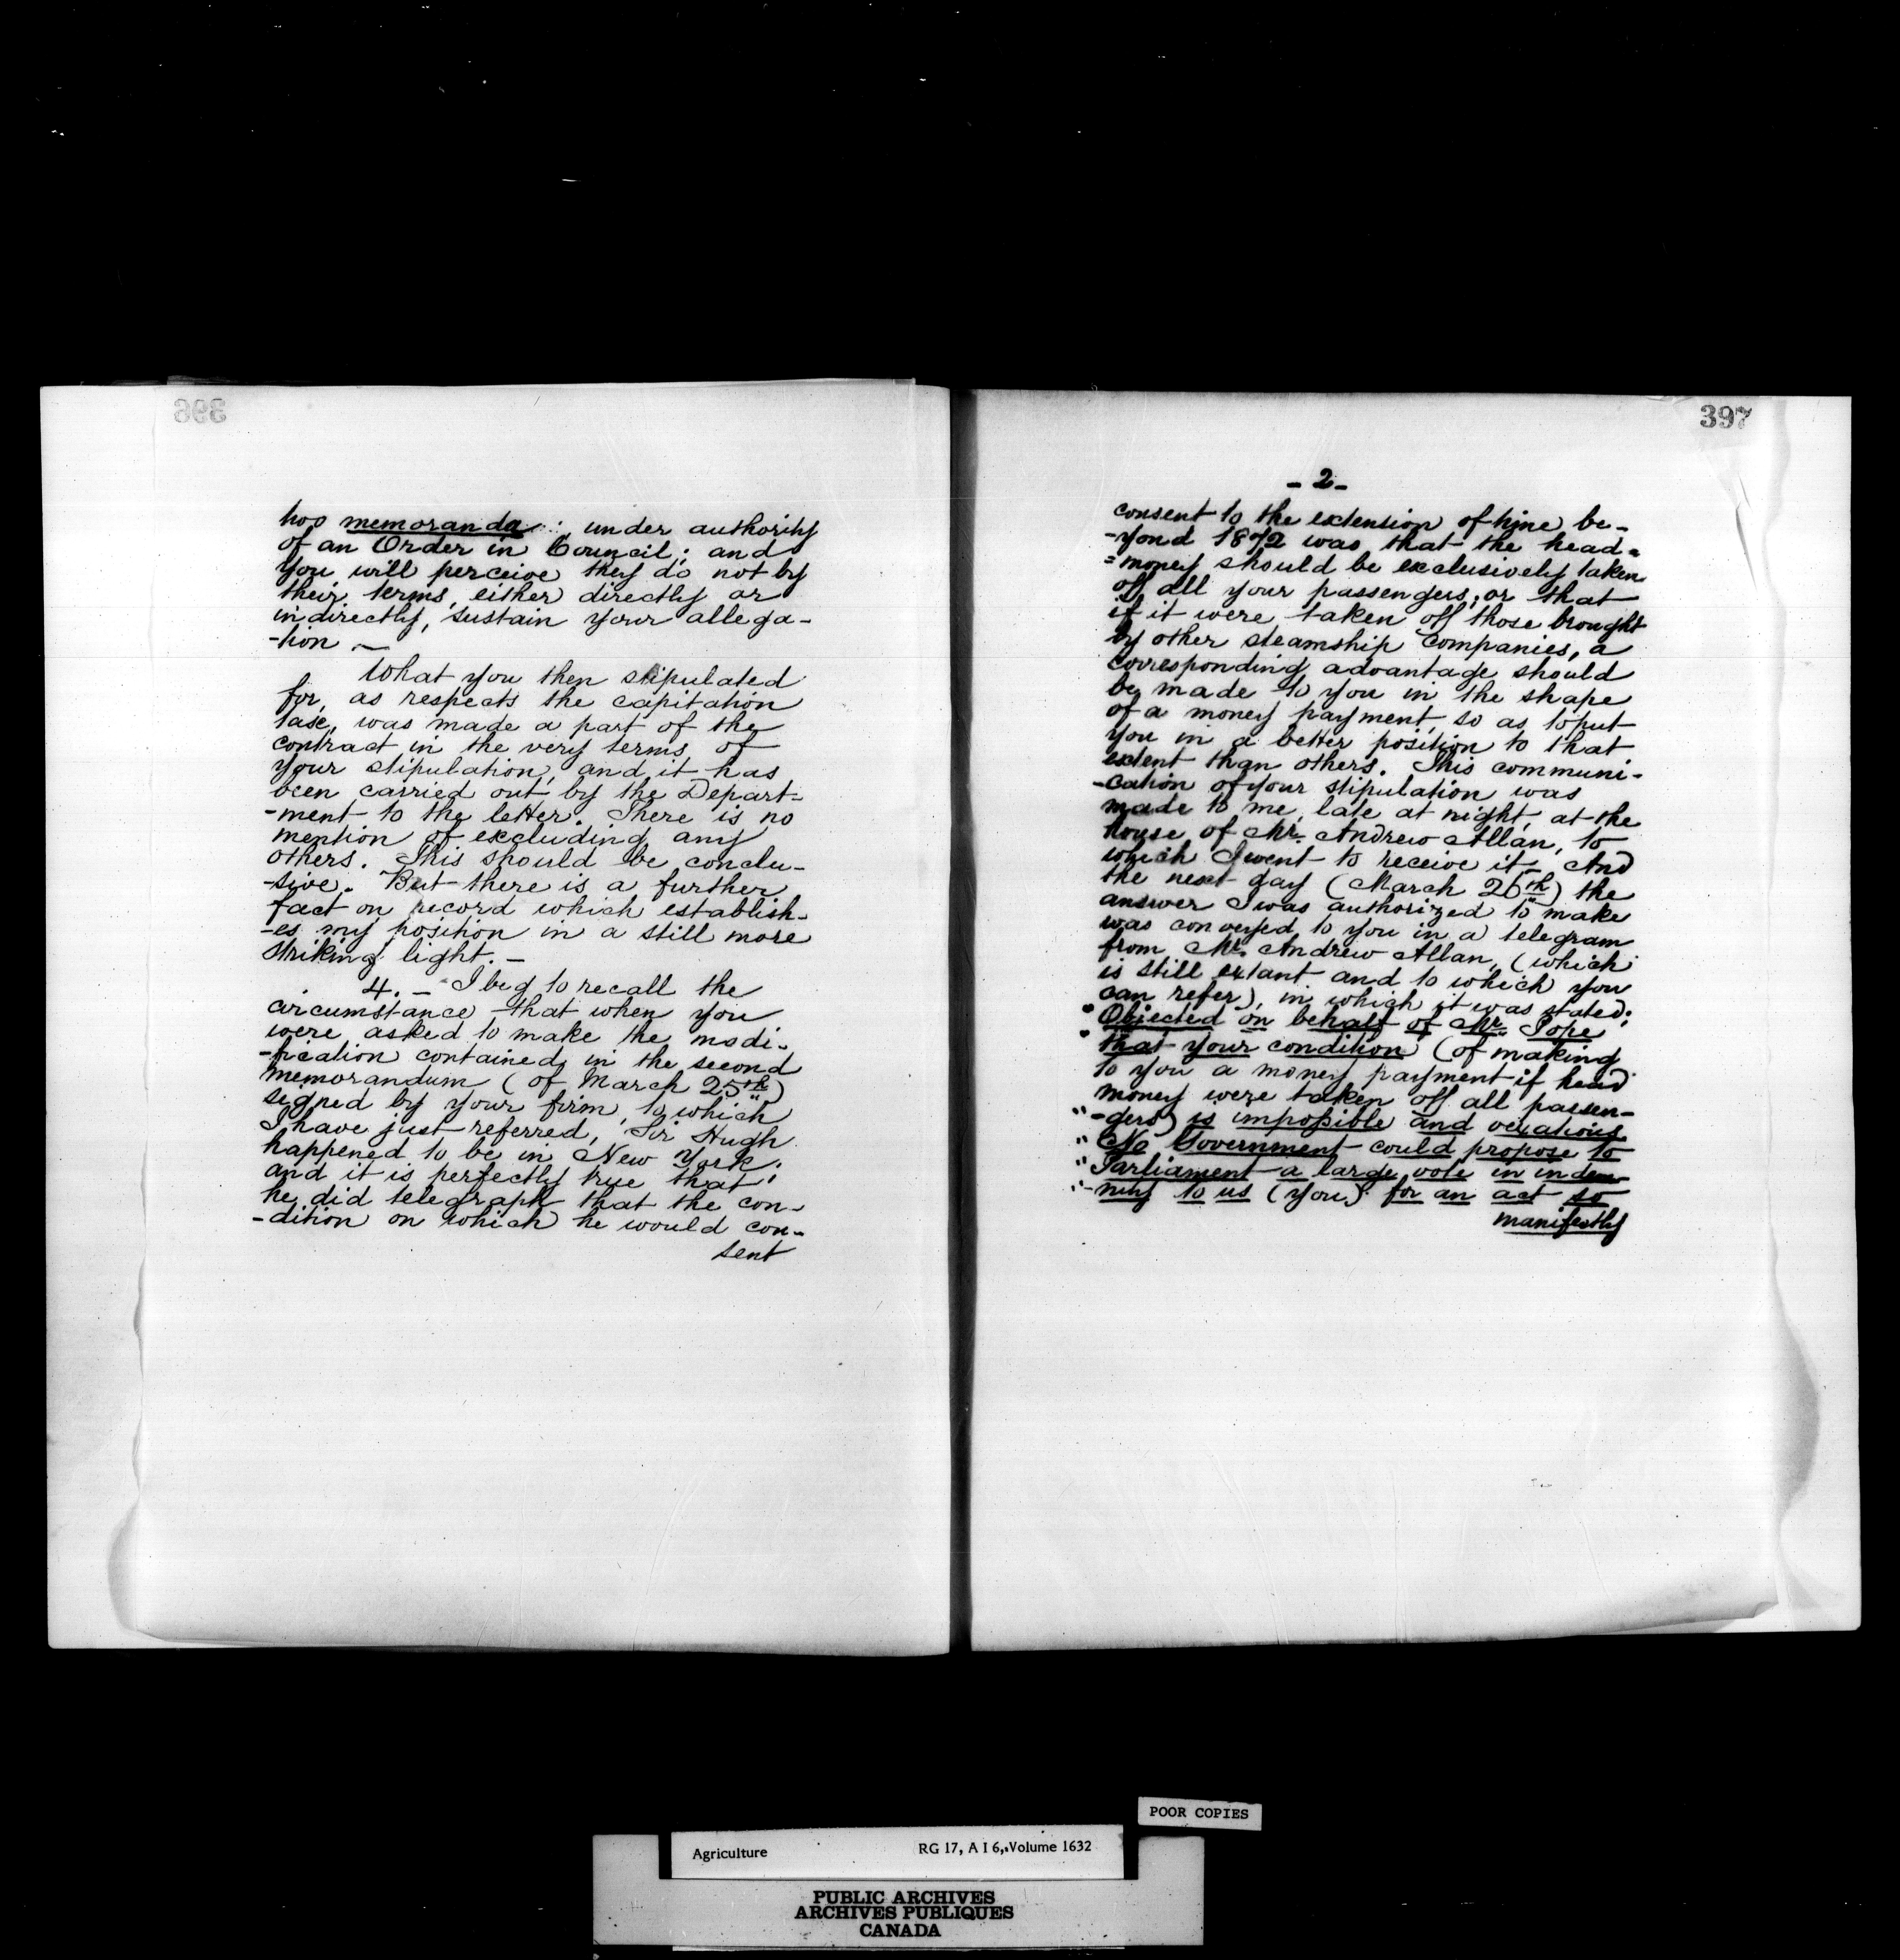 396
two memoranda: under authority
of an Order in Council; and
you will perceive they do not by
their terms, either directly or
indirectly, sustain your allega-
-tion —
What you then stipulated
for, as respects the capitation
tax, was made a part of the
contract in the very terms of
your stipulation, and it has
been carried out by the Depart-
-ment to the letter. There is no
mention of excluding any
others. This should be conclu-
-sive. But there is a further
fact on record which establish-
-es my position in a still more
striking light. —
4. — I beg to recall the
circumstance that when you
were asked to make the modi-
-fication contained in the second
memorandum (of March 25th)
signed by your firm, to which
I have just referred, Sir Hugh
happened to be in New York;
and it is perfectly true that
he did telegraph that the con-
-dition on which he would con-
sent
397
- 2 -
consent to the extension of time be-
-yond 1872 was that the head=
=money should be exclusively taken
off all your passengers, or that
if it were taken off those brought
by other steamship companies, a
corresponding advantage should
be made to you in the shape
of a money payment, so as to put
you in a better position to that
extent than others. This communi-
-cation of your stipulation was
made to me, late at night, at the
house of Mr. Andrew Allan, to
which I went to receive it — And
the next day (March 26th) the
answer I was authorized to make
was conveyed to you in a telegram
from Mr. Andrew Allan, (which
is still extant and to which you
can refer), in which it was stated:
"Objected on behalf of Mr. Pope
"that your condition (of making
to you a money payment if head
money were taken off all passen-
"-gers) is impossible and vexatious.
"No Government could propose to
"Parliament a large vote in indem-
"-nity to us (you) for an act so
manifestly
POOR COPIES
Agriculture RG 17, A I 6, Volume 1632
PUBLIC ARCHIVES
ARCHIVES PUBLIQUES
CANADA